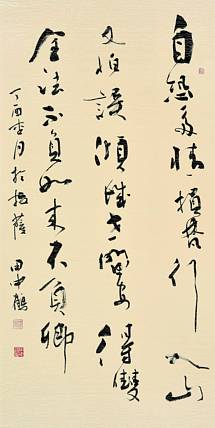 自恐多情損梵行入山
又怕誤傾城世間安得雙
全法不負如来不負卿
丁酉杏月於拉薩 田中鶴